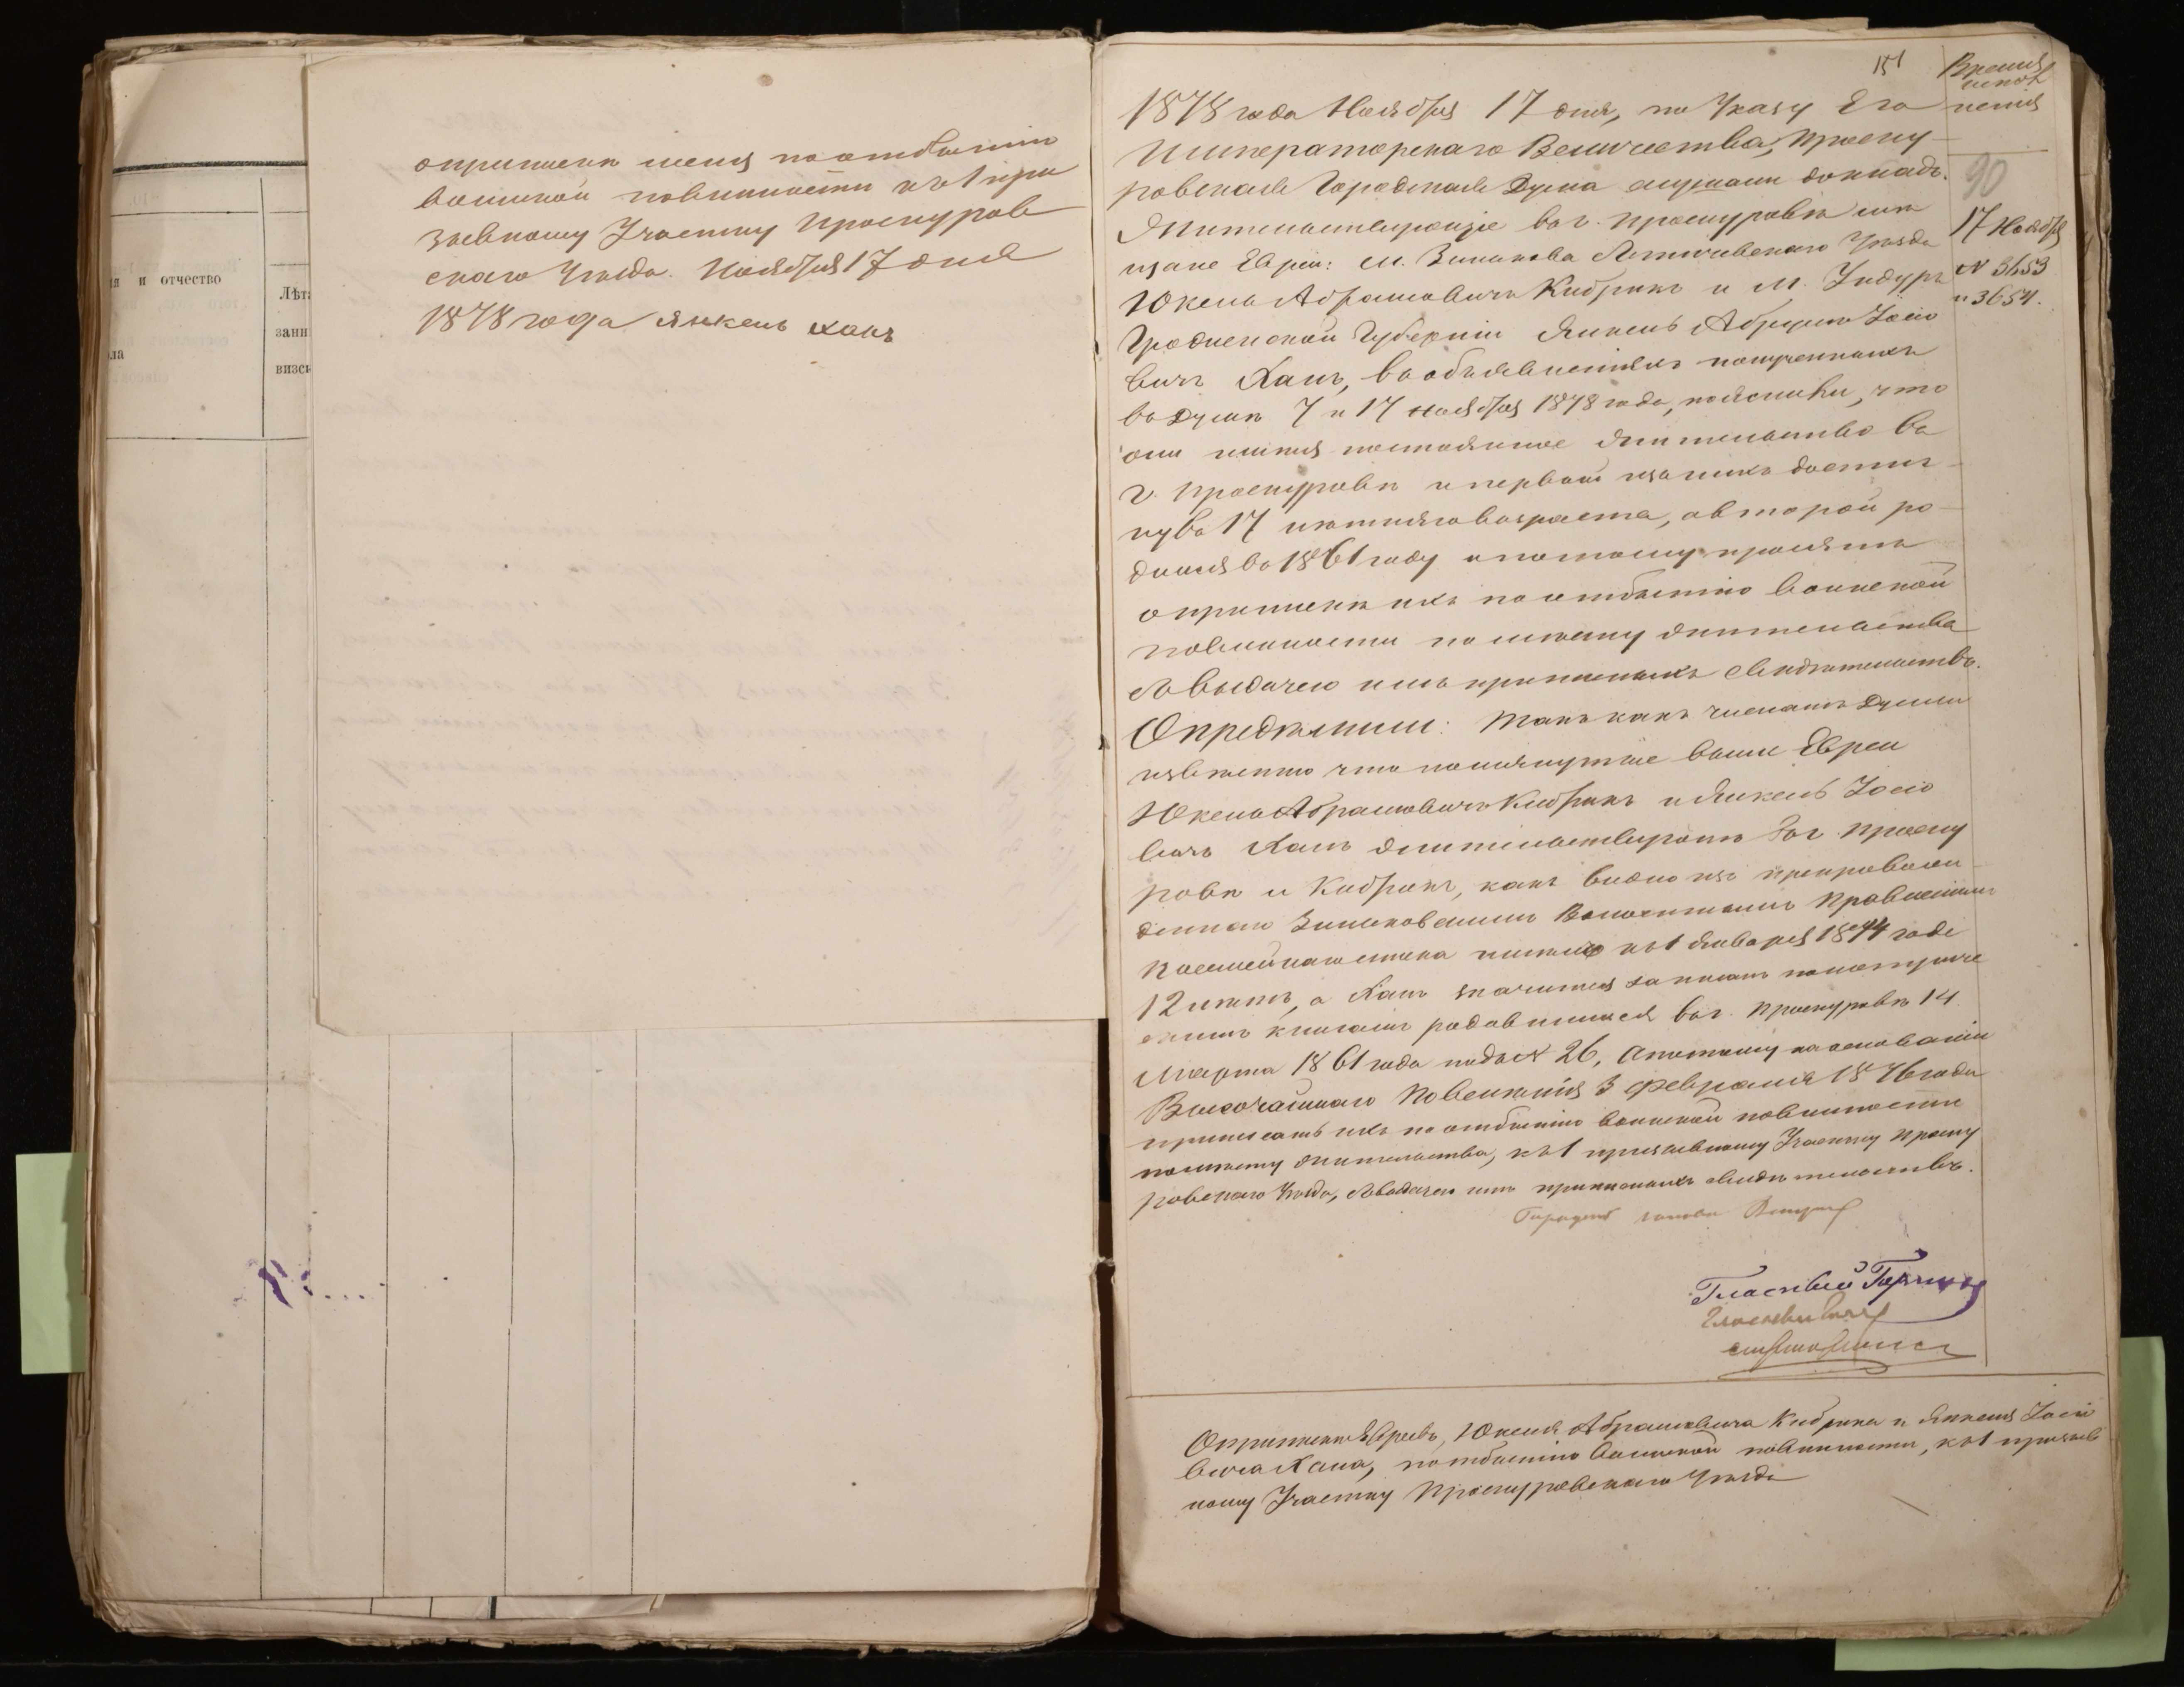 и отчество
Лѣт
зани
визск
ла
о припискѣ меня по отбытію
воинской повинности къ 1 при
зывному Участку Проскуров
скаго Уѣзда. Ноября 17 дня
1878 года Янкель Канъ
151
Время
испол
ненія
90
17 Ноября
№ 3653
и 3654.
1878 года Ноября 17 дня, по Указу Его
Императорскаго Величества, Проску-
ровская Городская Дума слушали докладъ:
Жительствующіе въ г. Проскуровѣ мѣ
щане Евреи: м. Зинькова Летичевскаго Уѣзда
Юкель Абрамовичъ Кибрикъ и м. Индуръ
Гродненской Губерніи Янкель Абрумъ Іосіо
вичъ Канъ, въ объявленіяхъ полученныхъ
въ Думѣ 7 и 17 Ноября 1878 года, пояснили, что
они имѣя постоянное жительство въ
г. Проскуровѣ и первый изъ нихъ достиг-
нувъ 17 лѣтняго возраста, а второй ро-
дился въ 1861 году а потому просятъ
о припискѣ ихъ по отбытію воинской
повинности по мѣсту жительства
съ выдачею имъ приписныхъ свидѣтельствъ.
Опредѣлили: Такъ какъ членамъ Думы
извѣстно что помянутые выше Евреи
Юкель Абрамовичъ Кибрикъ и Янкель Іосіо
вичъ Канъ жительствуютъ въ г. Проску
ровѣ и Кибрикъ, какъ видно изъ препровож
деннаго Зиньковскимъ Волостнымъ Правленіемъ
посемейнаго списка имѣлъ къ 1 Января 1874 года
12 лѣтъ, а Канъ значится записанъ по метриче
скимъ книгамъ родившимся въ г. Проскуровѣ 14
Марта 1861 года подъ № 26, а потому на основаніи
Высочайшаго Повелѣнія 3 Февраля 1876 года
приписать ихъ по отбытію воинской повинности
по мѣсту жительства, къ 1 призывному Участку Проску
ровскаго Уѣзда, съ выдачею имъ приписныхъ свидѣтельствъ.
Городской голова
Гласный
О припискѣ Евреевъ, Юкеля Абрамовича Кибрика и Янкеля Іосіо
вича Кана, по отбытію воинской повинности, къ 1 призыв
ному Участку Проскуровскаго Уѣзда